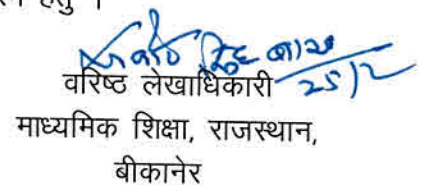 हेतु ।
25/2
वरिष्ठ लेखाधिकारी
माध्यमिक शिक्षा, राजस्थान,
बीकानेर